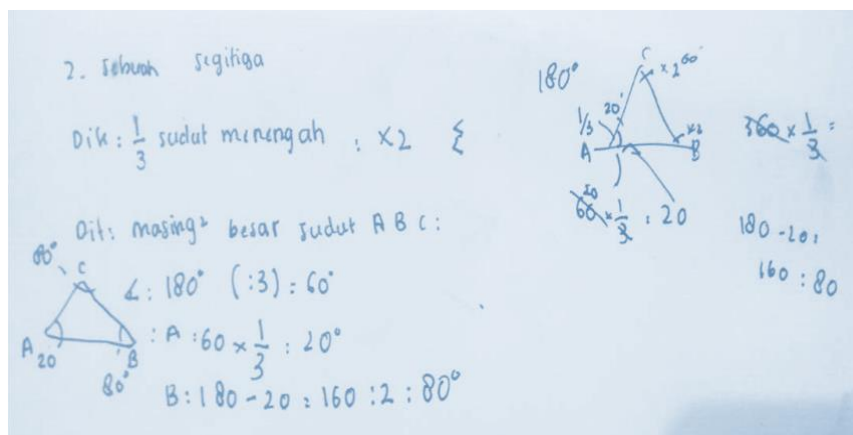 2. Sebuah segitiga
Dik : 1/3 sudut menengah : ×2
Dit : masing² besar sudut A B C :
80°
C
A 20
B
80°
∠ : 180° (:3) : 60°
: A : 60 × 1/3 : 20°
B : 180 - 20 : 160 : 2 : 80°
180°
C
× 2 60°
20°
1/3
A
×2
B
20
60 × 1/3 : 20
360 × 1/3 =
180 - 20 :
160 : 80